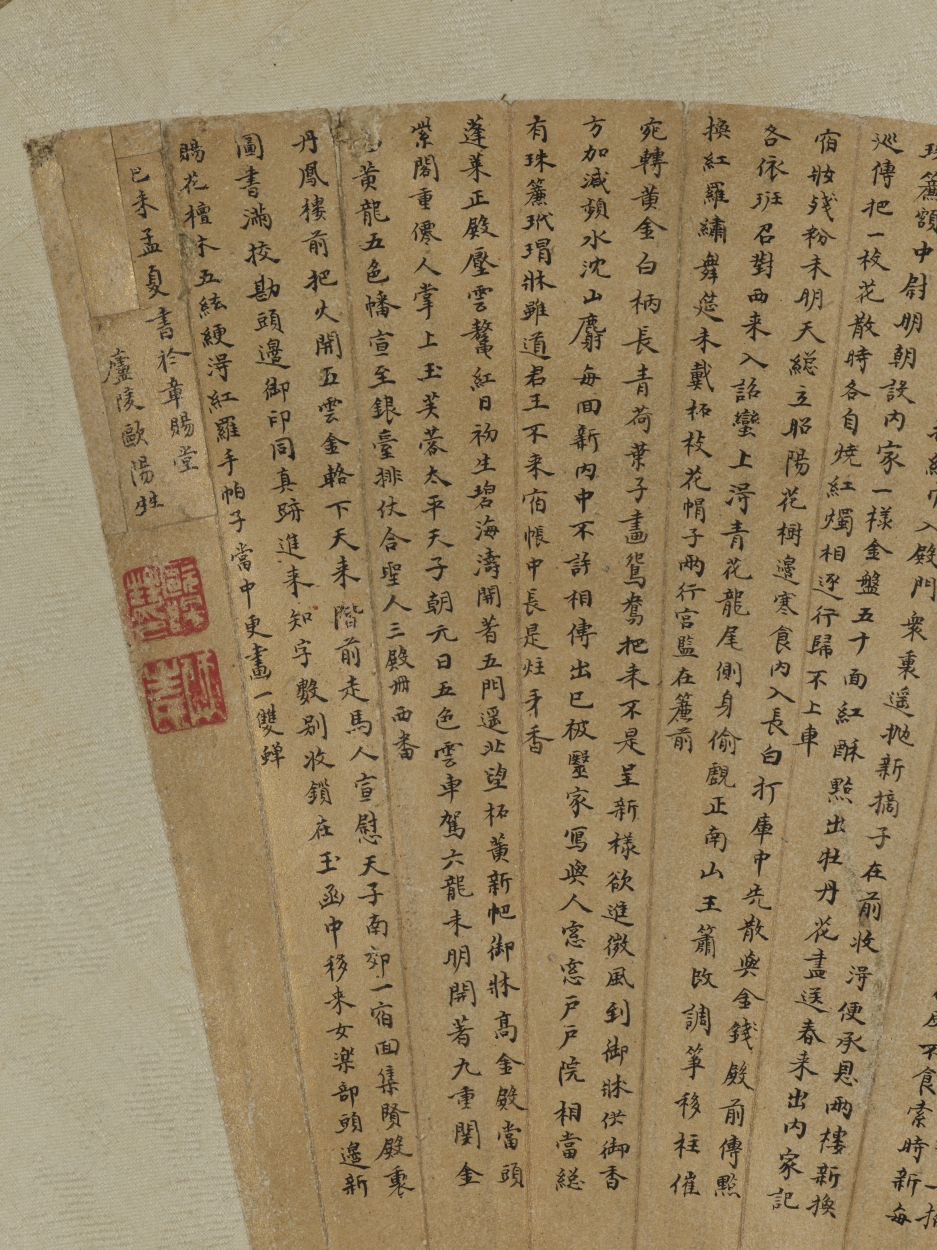 紅巾入殿門衆裏遥抛新摘子在前收得便承恩兩樓新換
不食索時新每
珠簾額中尉明朝設内家一樣金盤五十面紅酥點出牡丹花盡送春来出内家記
巡傳把一枝花散時各自燒紅燭相逐行歸不上車
宿妝殘粉未明天總立昭陽花樹邊寒食内入長白打庫中先散與金錢殿前傳點
各依班召對西来入詔蠻上得青花龍尾側身偷覷正南山王簫改調箏移柱催
換紅羅繡舞筵未戴柘枝花帽子兩行宫監在簾前
宛轉黄金白柄長青荷葉子畫鴛鴦把来不是呈新樣欲進微風到御牀供御香
方加減頻水沈山麝每回新内中不許相傳出已被醫家寫與人窓窓戸戸院相當總
有珠簾玳瑁牀雖道君王不来宿帳中長是炷牙香
蓬莱正殿壓雲鰲紅日初生碧海濤開著五門遥北望柘黄新帊御牀髙金殿當頭
紫閣重僊人掌上玉芙蓉太平天子朝元日五色雲車駕六龍未明開著九重關金
黄龍五色幡宣至銀臺排仗合聖人三殿冊西番
丹鳳樓前把火開五雲金輅下天来階前走馬人宣慰天子南郊一宿回集賢殿裏
圖書滿挍勘頭邊御印同真跡進来知字數别收鎖在玉函中移来女樂部頭邊新
賜花檀木五絃綆得紅羅手帕子當中更畫一雙蟬
己未孟夏書於章賜堂
廬陵歐陽